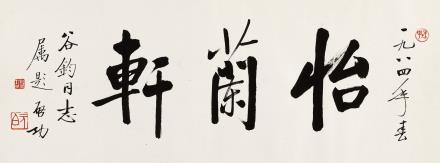 一九八四年春
怡蘭軒
谷鈞同志
属题 启功